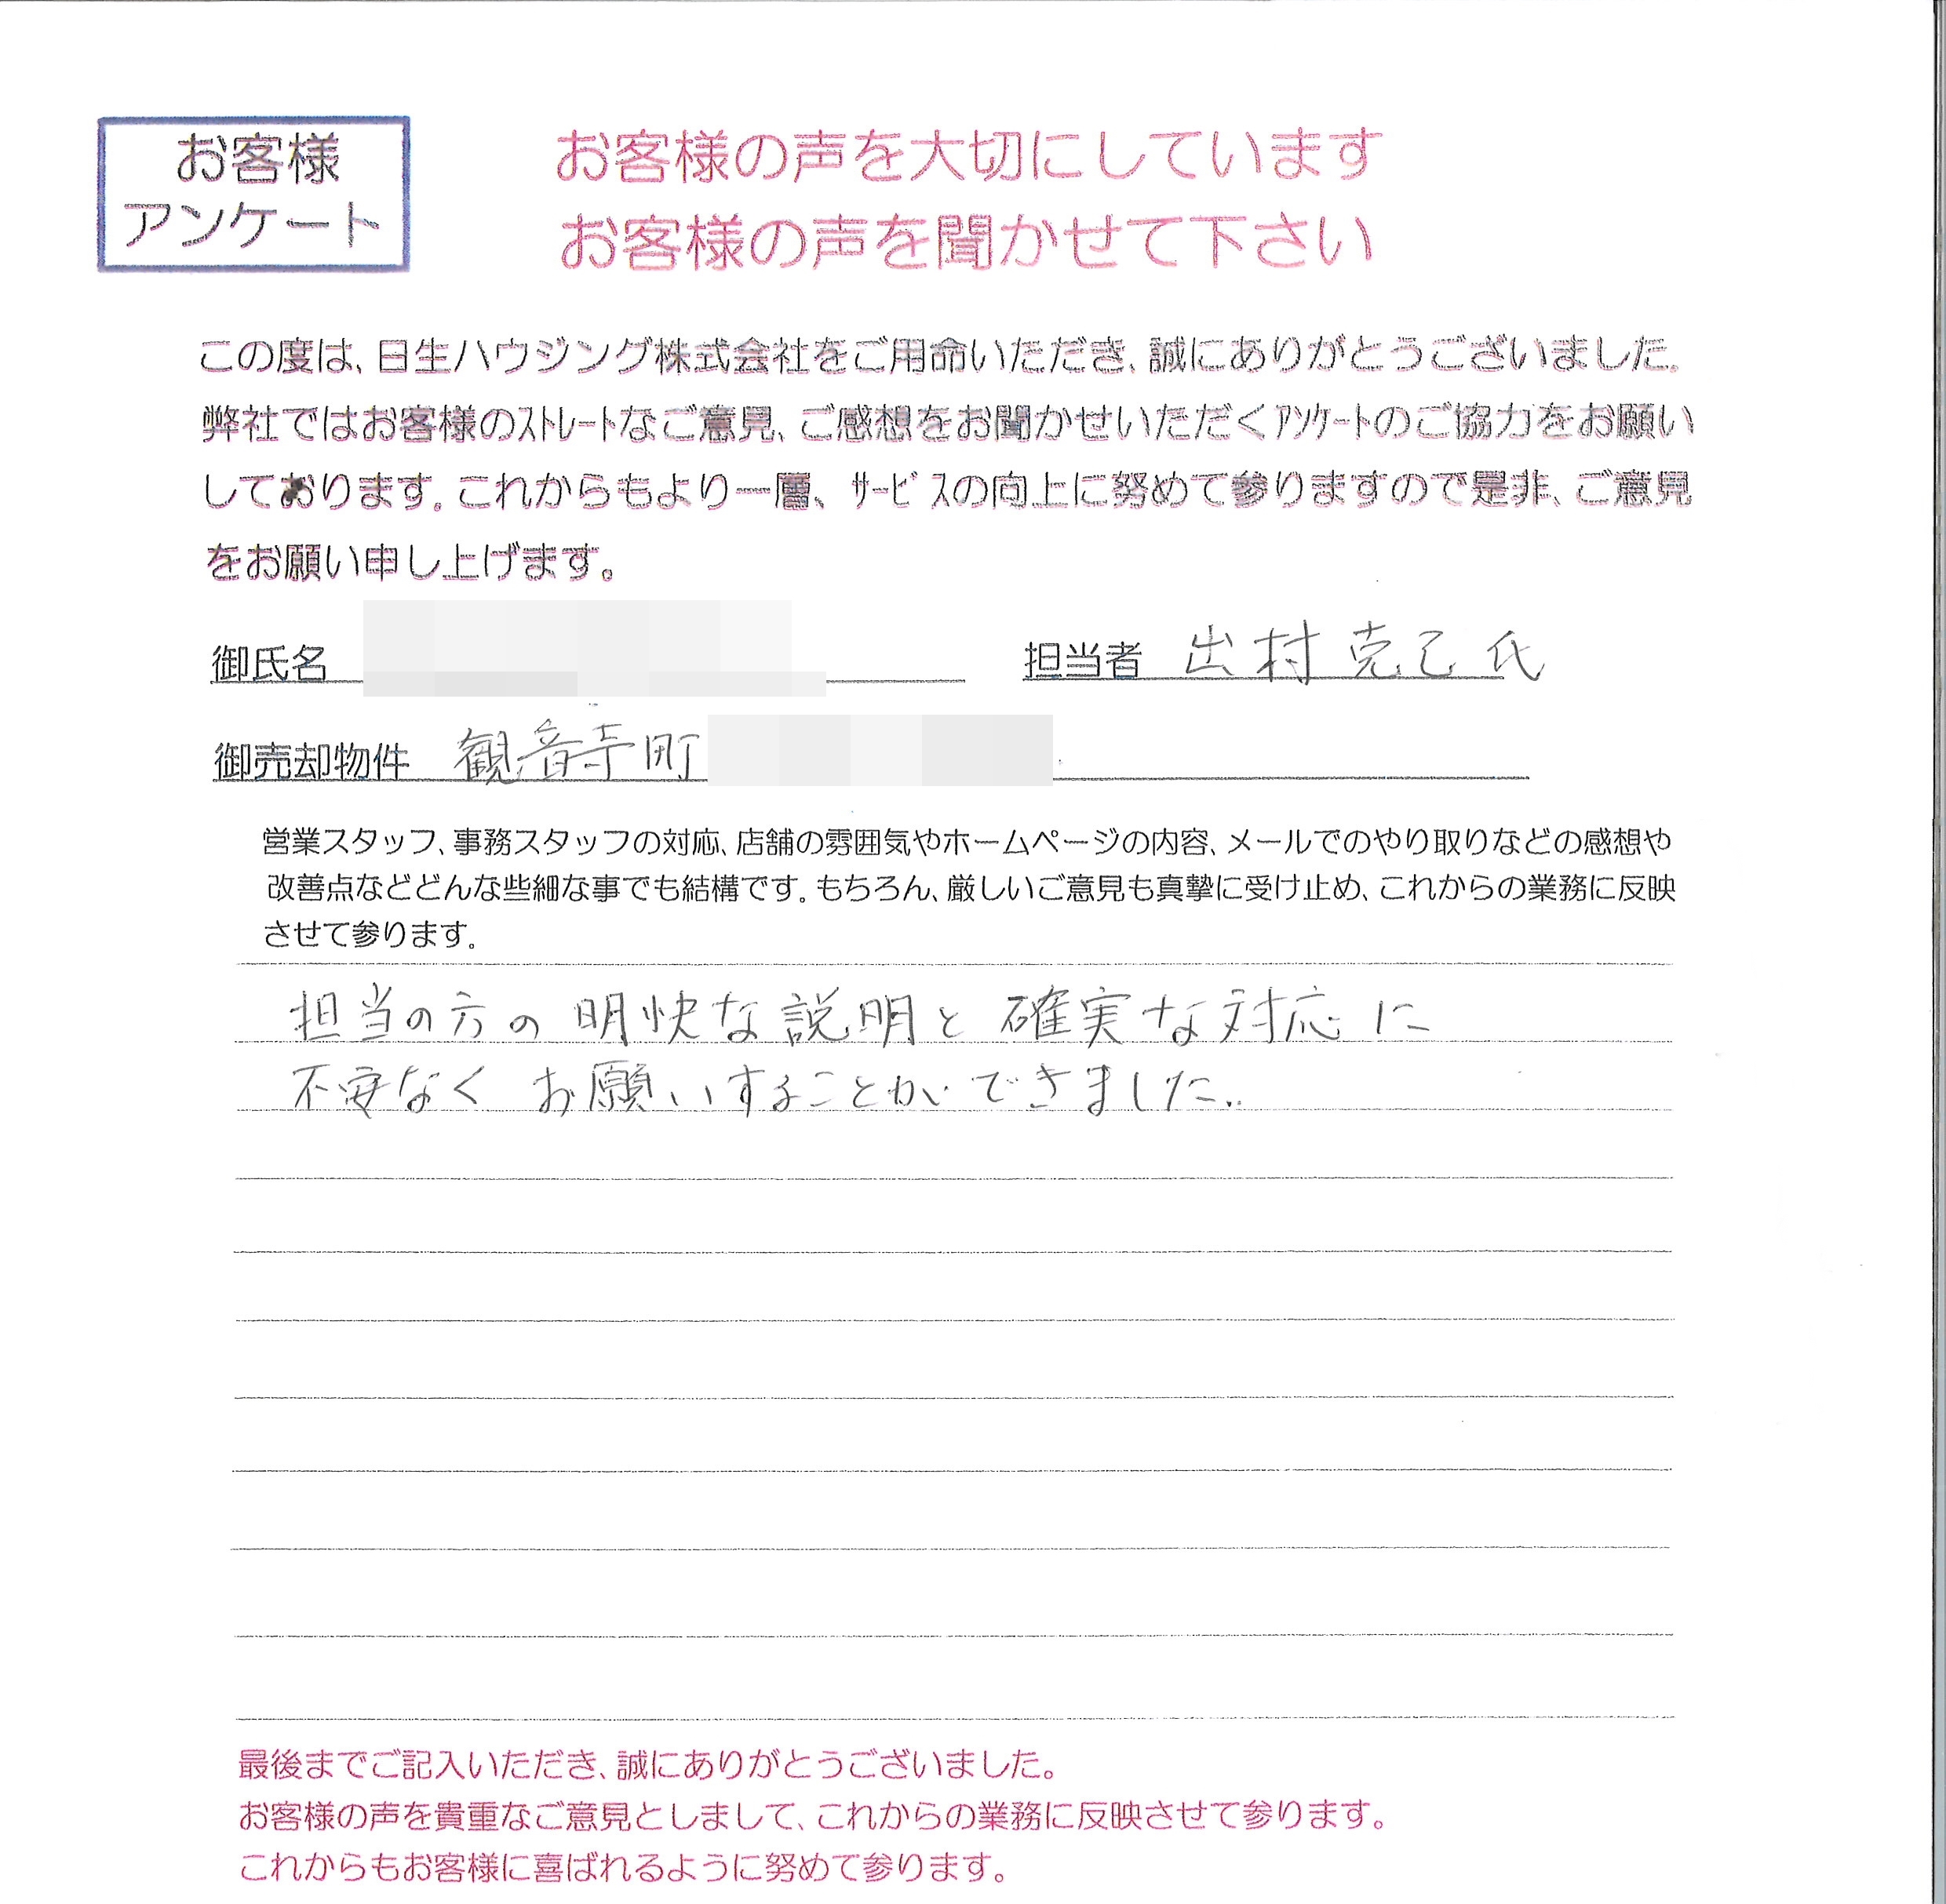 お客様
アンケート
お客様の声を大切にしています
お客様の声を聞かせて下さい
この度は、日生ハウジング株式会社をご用命いただき、誠にありがとうございました。
弊社ではお客様のｽﾄﾚｰﾄなご意見、ご感想をお聞かせいただくｱﾝｹｰﾄのご協力をお願い
しております。これからもより一層、ｻｰﾋﾞｽの向上に努めて参りますので是非、ご意見
をお願い申し上げます。
御氏名 担当者 出村克己氏
御売却物件 観音寺町
営業スタッフ、事務スタッフの対応、店舗の雰囲気やホームページの内容、メールでのやり取りなどの感想や
改善点などどんな些細な事でも結構です。もちろん、厳しいご意見も真摯に受け止め、これからの業務に反映
させて参ります。
担当の方の明快な説明と確実な対応に
不安なくお願いすることができました。
最後までご記入いただき、誠にありがとうございました。
お客様の声を貴重なご意見としまして、これからの業務に反映させて参ります。
これからもお客様に喜ばれるように努めて参ります。